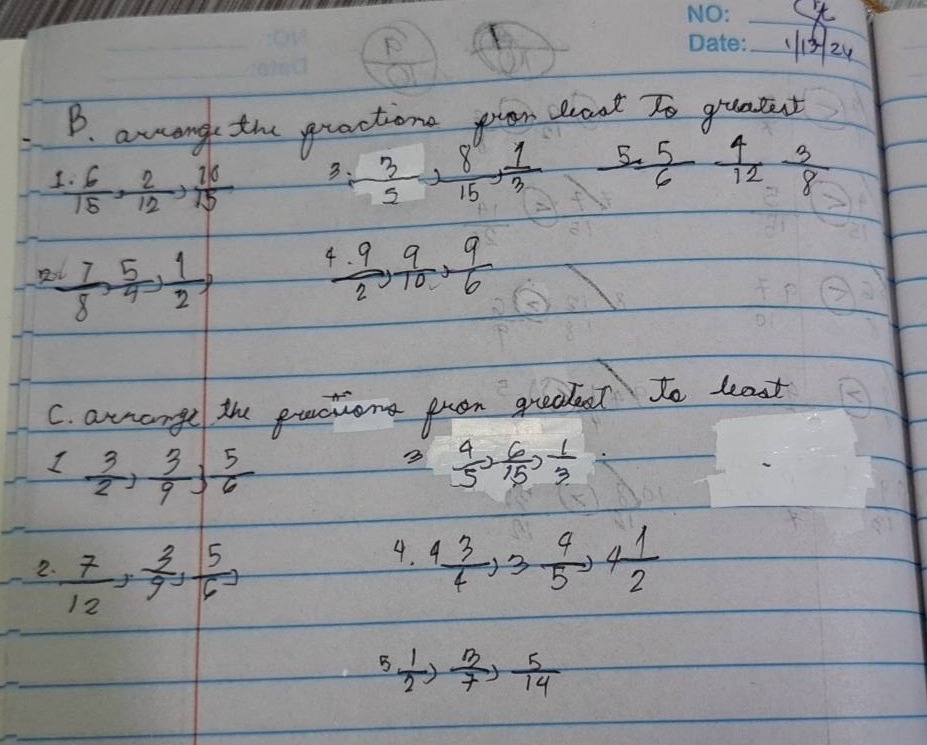 NO:
Date: 1/13/24
B. arrange the fractions from least to greatest
1. 6/15, 2/12, 10/15 3. 3/5, 8/15, 1/3 5. 5/6 4/12 3/8
2. 7/8, 5/4, 1/2, 4. 9/2, 9/10, 9/6
C. arrange the fractions from greatest to least
1 3/2, 3/9, 5/6 3 4/5, 6/15, 1/3
2. 7/12, 3/9, 5/6, 4. 4 3/4, 3 4/5, 4 1/2
5 1/2, 3/7, 5/14